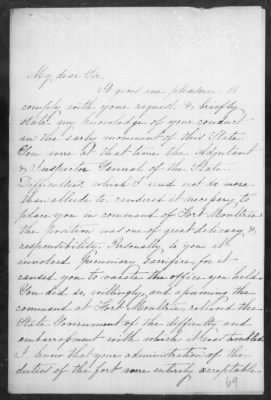 My dear Sir,
It gives me pleasure to
comply with your request, & briefly
state my knowledge of your conduct
in the early movement of this State.
You were at that time the Adjutant
& Inspector General of the State.
Difficulties, which I need not do more
than allude to rendered it necessary to
place you in command of Fort Moultrie
the position was one of great delicacy &
responsibility. Personally to you it
involved pecuniary sacrifice, for it
caused you to vacate the office you held.
You did so, willingly, and assuming the
command at Fort Moultrie, relieved the
State Government of the difficulty and
embarrassment with which it was
I know that your administration of the
duties of the fort were entirely acceptable
69